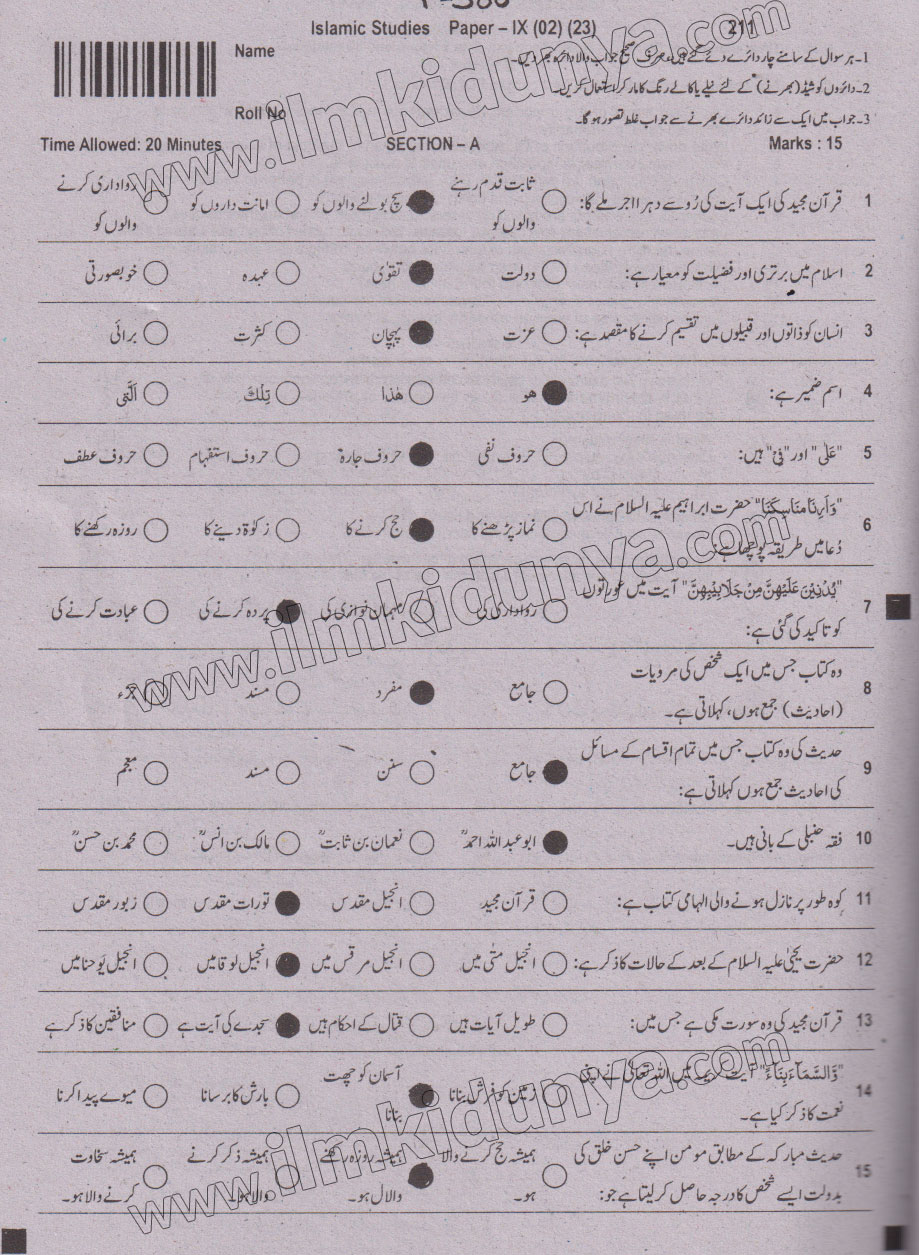 Islamic Studies Paper – IX (02) (23) 211
Name
Roll No
1۔ ہر سوال کے سامنے چار دائرے دئے گئے ہیں، صرف صحیح جواب والا دائرہ بھر دیں۔
2۔ دائروں کو شیڈ (بھرنے) کے لئے نیلے یا کالے رنگ کا مارکر استعمال کریں۔
3۔ جواب میں ایک سے زائد دائرے بھرنے سے جواب غلط تصور ہوگا۔
Time Allowed: 20 Minutes SECTION – A Marks : 15
1 قرآن مجید کی ایک آیت کی رُو سے دہرا اجر ملے گا: ثابت قدم رہنے والوں کو سچ بولنے والوں کو امانت داروں کو رواداری کرنے والوں کو
2 اسلام میں برتری اور فضیلت کو معیار ہے: دولت تقوٰی عہدہ خوبصورتی
3 انسان کو ذاتوں اور قبیلوں میں تقسیم کرنے کا مقصد ہے: عزت پہچان کثرت برائی
4 اسم ضمیر ہے: هو هٰذا تِلْكَ اَلَّتِی
5 "عَلٰی" اور "فِیْ" ہیں: حروف نفی حروف جارہ حروف استفہام حروف عطف
6 "وَأَرِنَا مَنَاسِكَنَا" حضرت ابراہیم علیہ السلام نے اس
دُعا میں طریقہ پوچھا ہے: نماز پڑھنے کا حج کرنے کا زکوٰۃ دینے کا روزہ رکھنے کا
7 "يُدْنِيْنَ عَلَيْهِنَّ مِنْ جَلَابِيْبِهِنَّ" آیت میں عورتوں
کو تاکید کی گئی ہے: رواداری کی مہمان نوازی کی پردہ کرنے کی عبادت کرنے کی
8 وہ کتاب جس میں ایک شخص کی مرویات
(احادیث) جمع ہوں، کہلاتی ہے۔ جامع مفرد مسند جزء
9 حدیث کی وہ کتاب جس میں تمام اقسام کے مسائل
کی احادیث جمع ہوں کہلاتی ہے: جامع سنن مسند معجم
10 فقہ حنبلی کے بانی ہیں۔ ابوعبداللہ احمدؒ نعمان بن ثابتؒ مالک بن انسؒ محمد بن حسنؒ
11 کوہ طور پر نازل ہونے والی الہامی کتاب ہے: قرآن مجید انجیل مقدس تورات مقدس زبور مقدس
12 حضرت یحیٰی علیہ السلام کے بعد کے حالات کا ذکر ہے: انجیل متٰی میں انجیل مرقس میں انجیل لوقا میں انجیل یوحنا میں
13 قرآن مجید کی وہ سورت مکی ہے جس میں: طویل آیات ہیں قتال کے احکام ہیں سجدے کی آیت ہے منافقین کا ذکر ہے
14 "وَّالسَّمَآءَ بِنَآءً" آیت کریمہ میں اللہ تعالٰی نے اپنی
نعمت کا ذکر کیا ہے۔ زمین کو فرش بنانا آسمان کو چھت بنانا بارش کا برسانا میوے پیدا کرنا
15 حدیث مبارکہ کے مطابق مومن اپنے حسن خلق کی
بدولت ایسے شخص کا درجہ حاصل کر لیتا ہے جو: ہمیشہ حج کرنے والا ہو۔ ہمیشہ روزہ رکھنے والال ہو۔ ہمیشہ ذکر کرنے والا ہو۔ ہمیشہ سخاوت کرنے والا ہو۔
www.ilmkidunya.com
www.ilmkidunya.com
www.ilmkidunya.com